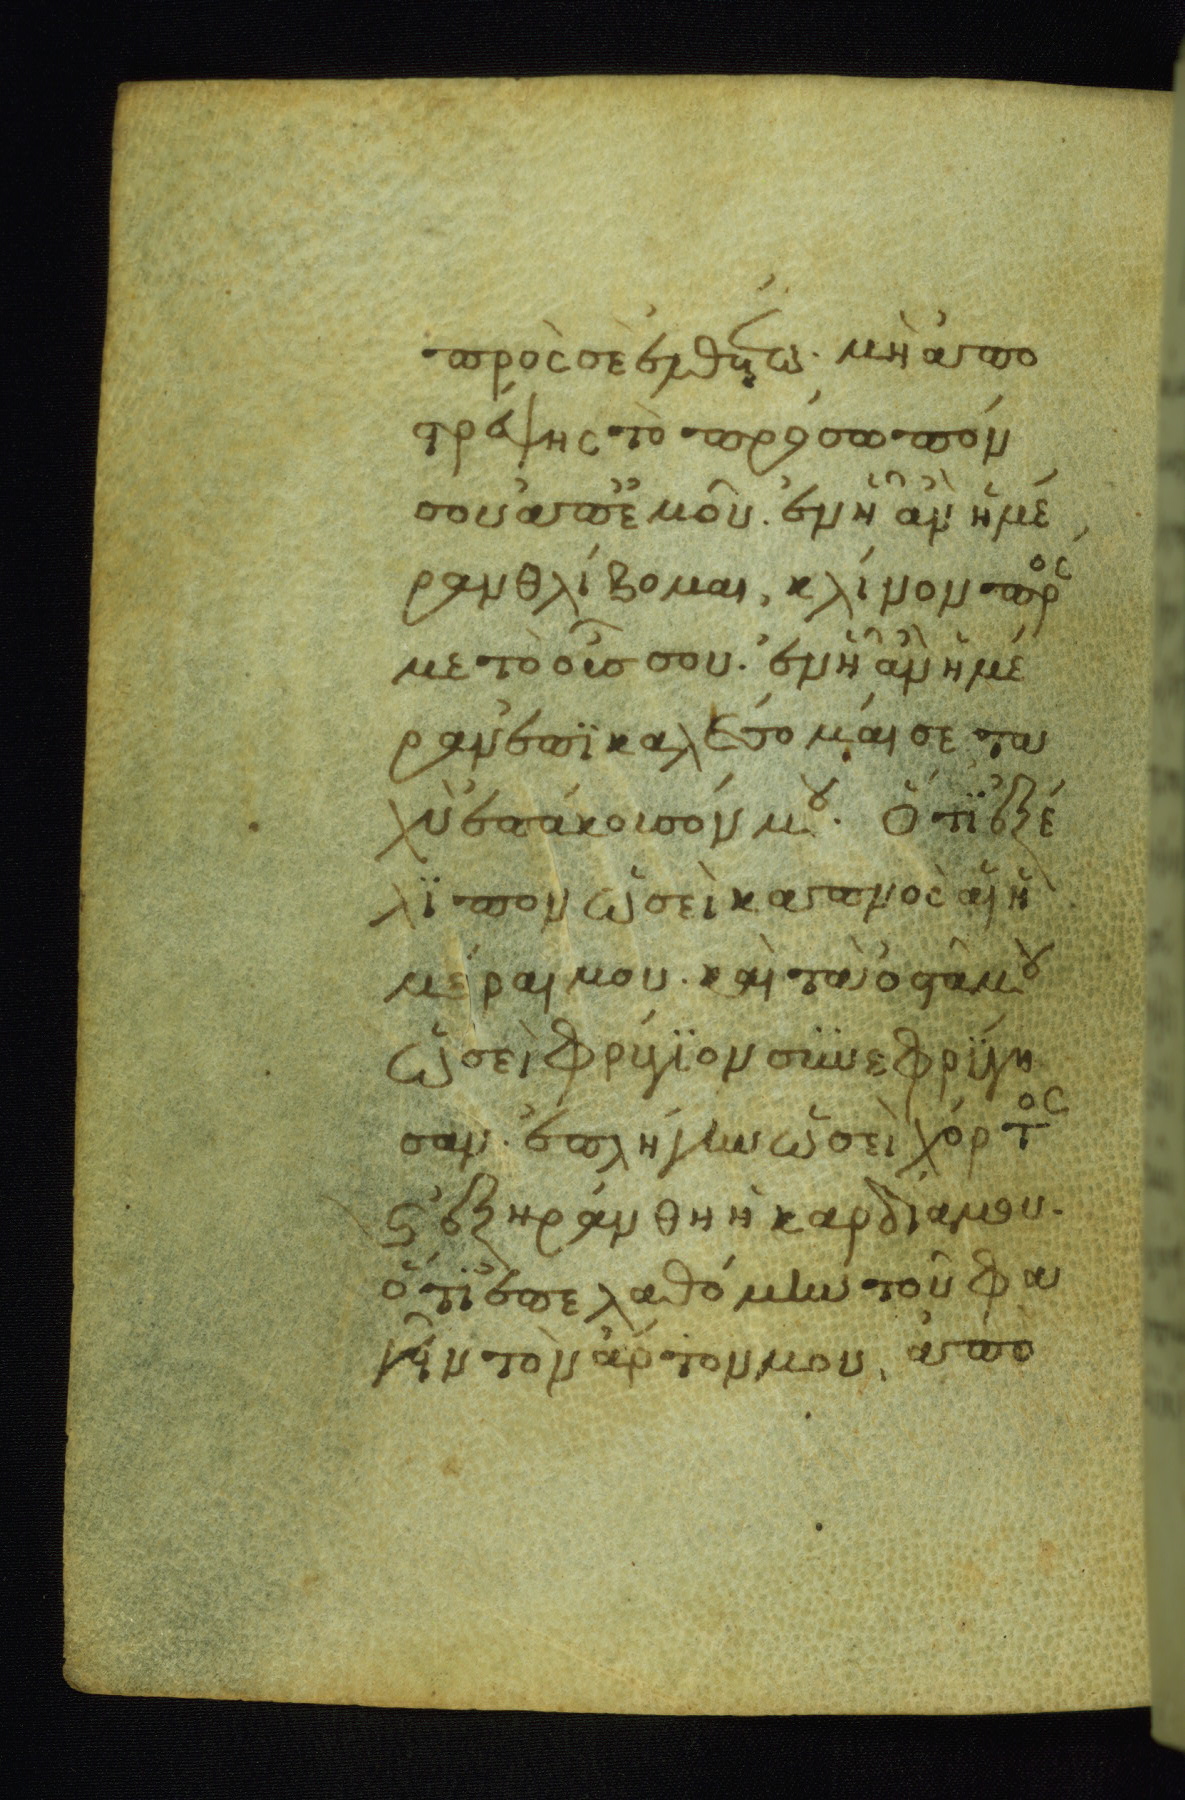 πρὸς σὲ ἐλθέτω. μὴ ἀπο
στρέψης τὸ πρόσωπόν
σου ἀπεμοῦ. ἐν ἧ ἂν ἡμέ
ραν θλίβομαι, κλίνον πρός
με τὸ οὖς σου. ἐν ἧ ἂν ἡμέ
ραν ἐπϊκαλέσομαί σε τα
χὺ ἐπάκουσόν μου. Ὅτϊ ἐξέ
λϊπον ὡσεὶ καπνὸς αἱ ἡ
μέραι μου. καὶ τὰ ὀστᾶ μου
ὡσεὶ φρύγϊον συνεφρύγη
σαν. ἐπλήγην ὡσεὶ χόρτος
ϗ ἐξηράνθη ἡ καρδία μου.
ὅτϊ ἐπελαθόμην τοῦ φα
γεῖν τὸν ἄρτον μου, ἀπὸ